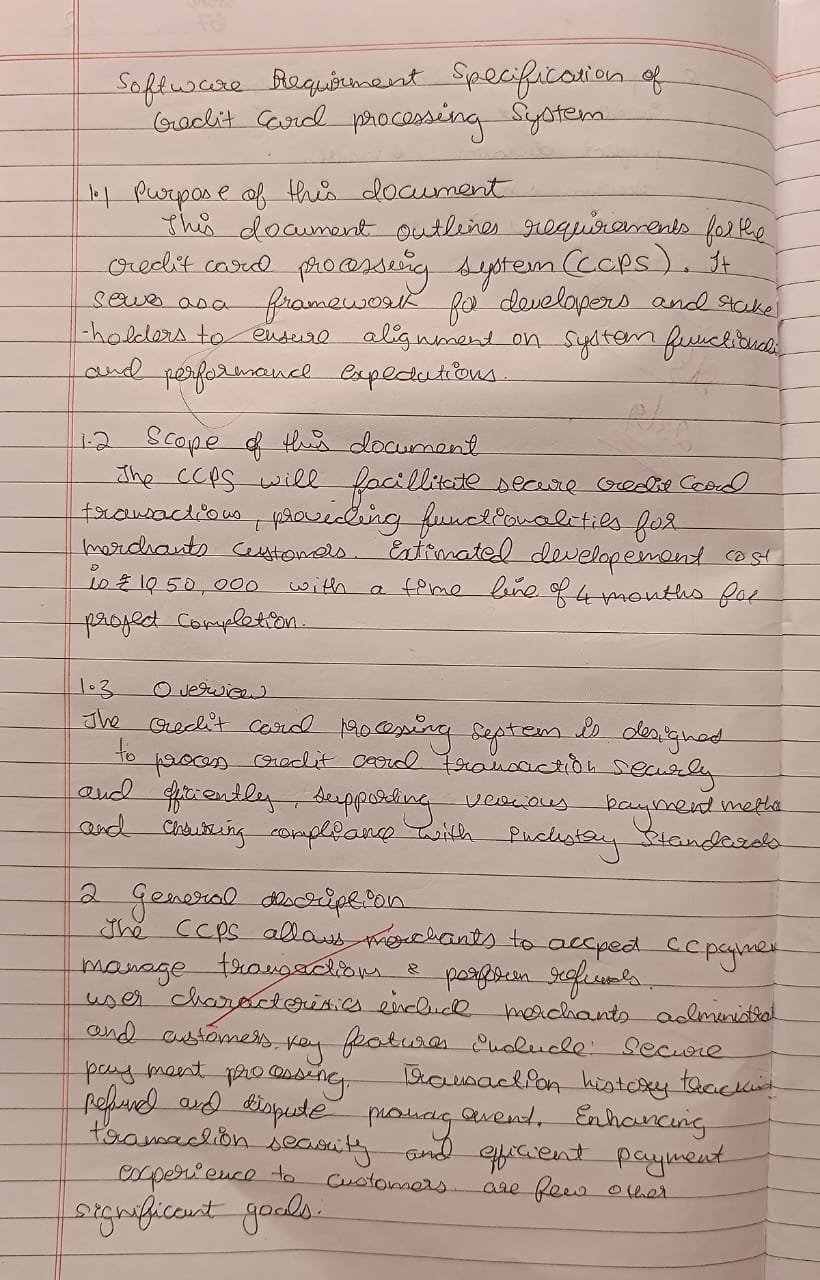 Software Requirment Specification of
Credit Card processing System
1.1 Purpose of this document
This document outlines requirements for the
credit card processing system (CCPS). It
serves as a framework for developers and stake
-holders to ensure alignment on system functionali
and performance expectations.
1.2 Scope of this document
The CCPS will facillitate secure credit card
transactions, providing functionalities for
merchants customers. Estimated developement cost
is ₹ 1050,000 with a time line of 4 months for
project completion.
1.3 Overview
The credit card processing system is designed
to process credit card transaction securly
and efficiently, supporting various payment metho
and ensuring compliance with industry standards
2 General description
The CCPS allows merchants to accped CC paymen
manage transactions & perform refunds.
user characteristics include merchants administrat
and customers. Key features include: Secure
pay ment processing. Transaction history trackin
Refund and dispute management. Enhancing
transaction security and efficient payment
experience to customers are few other
significant goals.